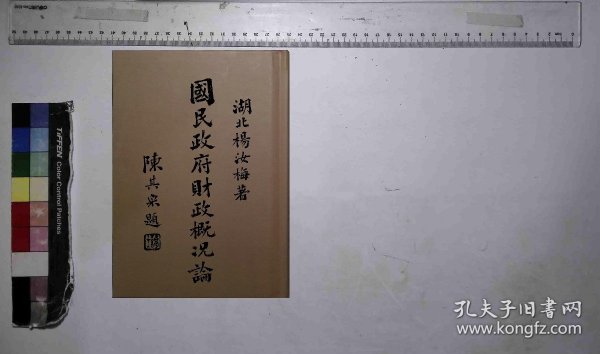 湖北楊汝梅著
國民政府財政概況論
陳其采題
TIFFEN Color Control Patches
孔夫子旧书网
www.kongfz.com